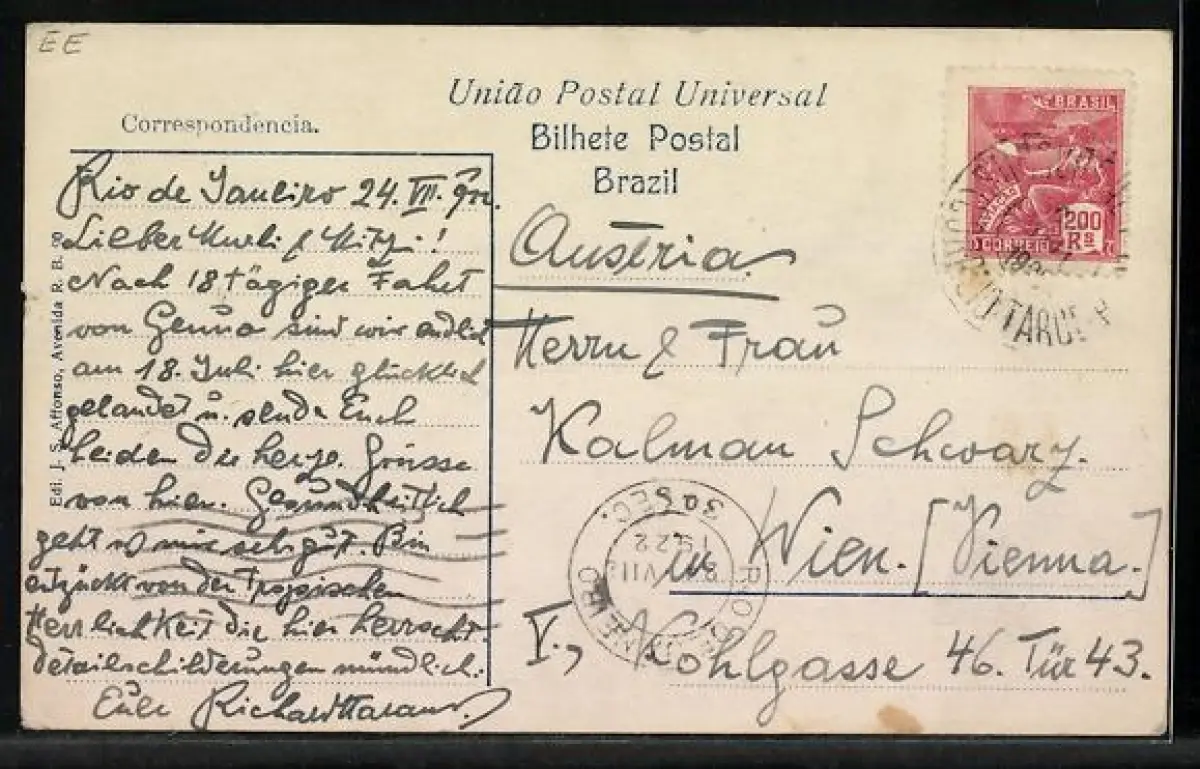 EE
União Postal Universal
Correspondencia.
Bilhete Postal
Brazil
BRASIL
AVIAÇÃO
200
CORREIO Rs
7
Rio de Janeiro 24. VII.
Lieber Kurli & Mitzi!
Nach 18 tägiger Fahrt
von Genua sind wir endlich
am 18. Juli hier glücklich
gelandet u. sende Euch
beiden die herzl. Grüsse
von hier. Gesundheitlich
geht es mir sehr gut. Bin
entzückt von der tropischen
Herrlichkeit die hier herrscht.
Detailschilderungen mündlich.
Euer Richard
Edi. J. S. Affonso, Avenida R. B.
Austria.
Herrn & Frau
Kalman Schwarz.
in Wien. [Vienna.]
V., Kohlgasse 46. Tür 43.
3a SEC.
1922
VII